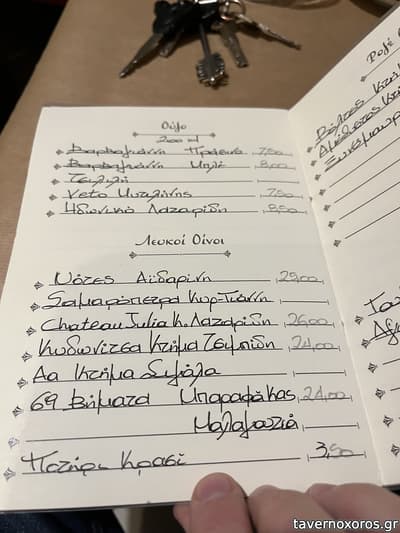 Ούζο
200 ml
Βαρβαγιάννη Πράσινο 7,50
Βαρβαγιάννη Μπλέ 8,00
Τσιλιλή
Veto Μυτιλήνης 7,50
Ηδωνικό Λαζαρίδη 8,50
Λευκοί Οίνοι
Νότες Αϊδαρίνη 29,00
Σαμαρόπετρα Κυρ-Γιάννη
Chateau Julia Κ. Λαζαρίδη 26,00
Κυδωνίτσα Κτήμα Τσιμπίδη 24,00
Αα Κτήμα Σιγάλα
69 Βήματα Μπαραφάκας 24,00
Μαλαγουζιά
Ποτήρι Κρασί 3,50
Ροζέ
tavernoxoros.gr